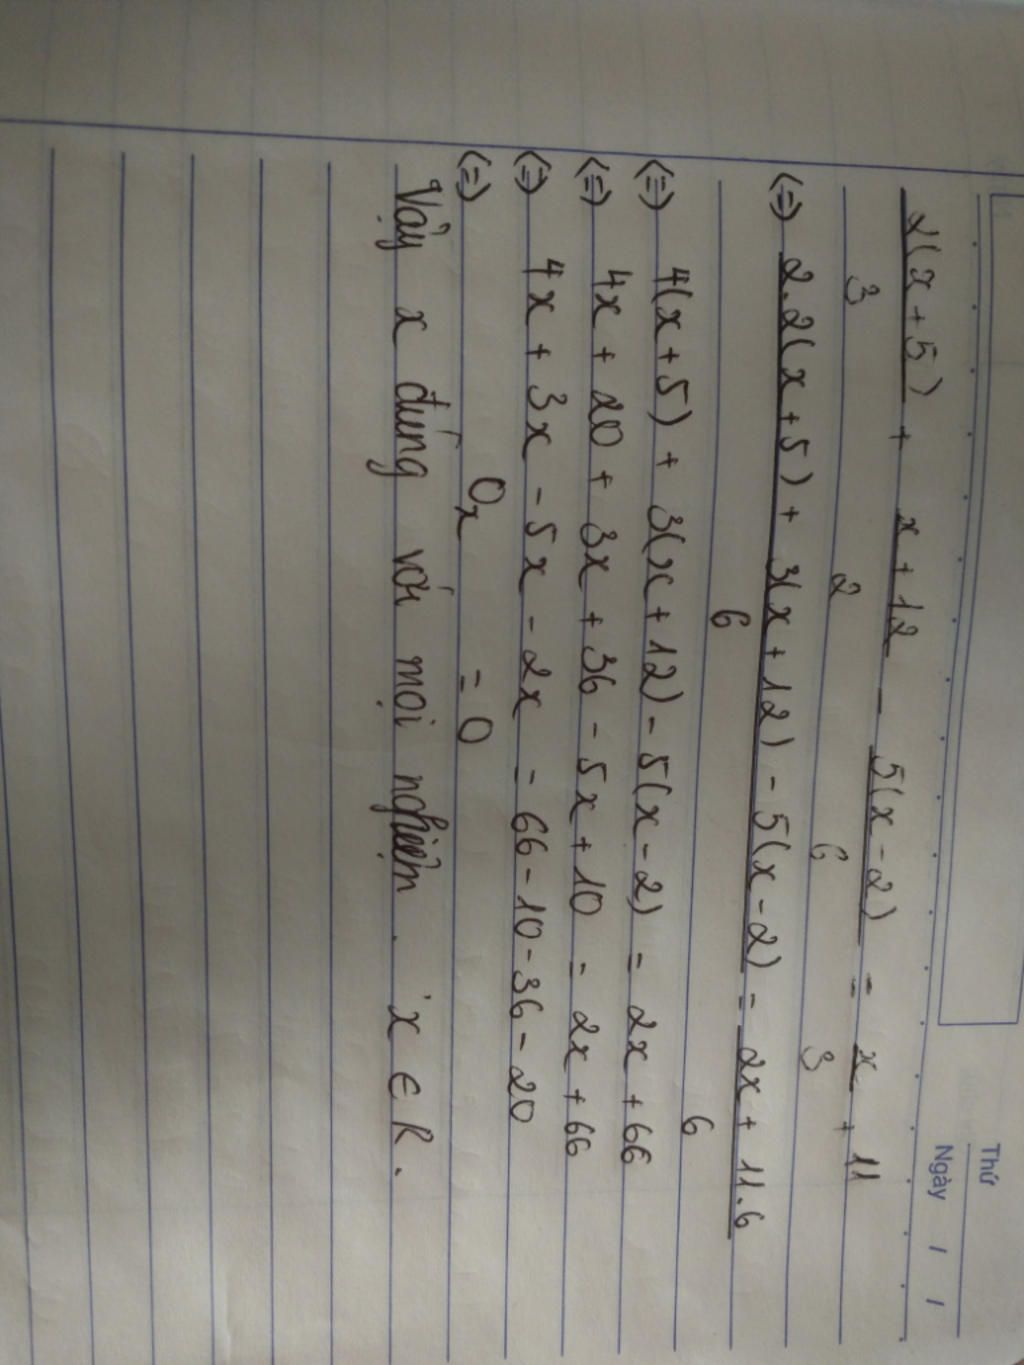 Thứ
Ngày / /
2(x+5) + x+12 - 5(x-2) = x + 11
3 2 6 3
(=) 2.2(x+5) + 3(x+12) - 5(x-2) = 2x + 11.6
6 6
(=) 4(x+5) + 3(x+12) - 5(x-2) = 2x + 66
(=) 4x + 20 + 3x + 36 - 5x + 10 = 2x + 66
(=) 4x + 3x - 5x - 2x = 66 - 10 - 36 - 20
(=) 0x = 0
Vậy x đúng với mọi nghiệm. x ∈ R.